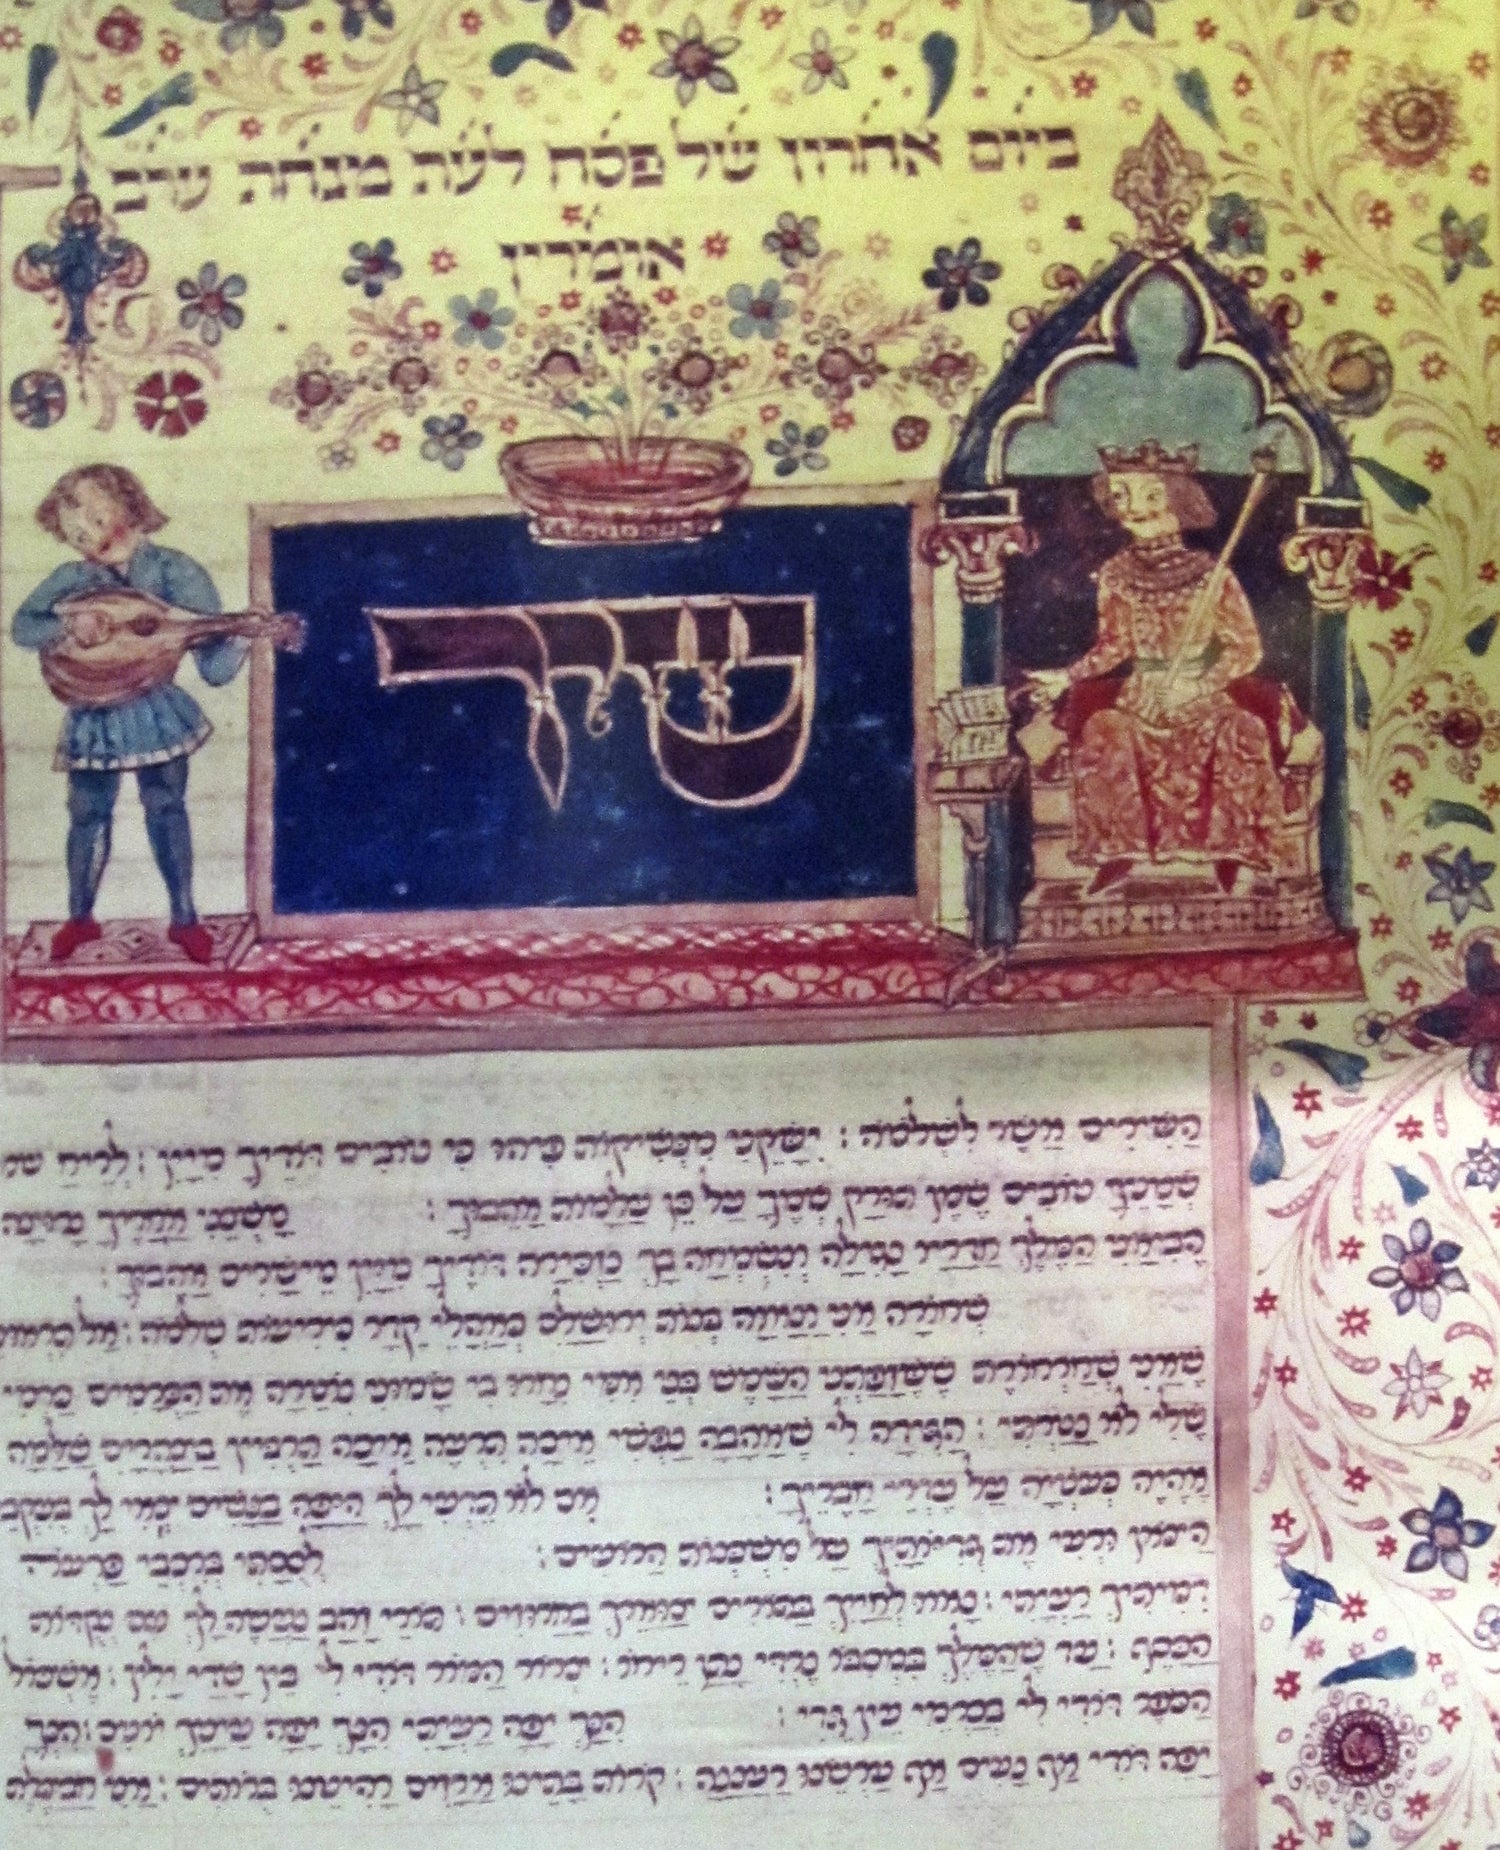 ביום אחרון של פסח לעת מנחה ערב
אומרין
שיר
השירים אשר לשלמה : ישקני מנשיקות פיהו כי טובים דודיך מיין : לריח
שמניך טובים שמן תורק שמך על כן עלמות אהבוך : משכני אחריך נרוצה
הביאני המלך חדריו נגילה ונשמחה בך נזכירה דודיך מיין מישרים אהבוך :
שחורה אני ונאוה בנות ירושלם כאהלי קדר כיריעות שלמה : אל
שאני שחרחורת ששזפתני השמש בני אמי נחרו בי שמוני נוטרה את הכרמים כרמי
שלי לא נטרתי : הגידה לי שאהבה נפשי איכה תרעה איכה תרביץ בצהרים שלמה
אהיה כעטיה על עדרי חביריך : אם לא תדעי לך היפה בנשים צאי לך בעקבי
הצאן ורעי את גדיותיך על משכנות הרועים : לסוסתי ברכבי פרעה
דמיתיך רעיתי : נאוו לחייך בתורים צוארך בחרוזים : תורי זהב נעשה לך עם נקודות
הכסף : עד שהמלך במסבו נרדי נתן ריחו : צרור המור דודי לי בין שדי ילין : אשכול
הכפר דודי לי בכרמי עין גדי : הנך יפה רעיתי הנך יפה עיניך יונים : הנך
יפה דודי אף נעים אף ערשנו רעננה : קרות בתינו ארזים רהיטנו ברותים : אני חבצלת